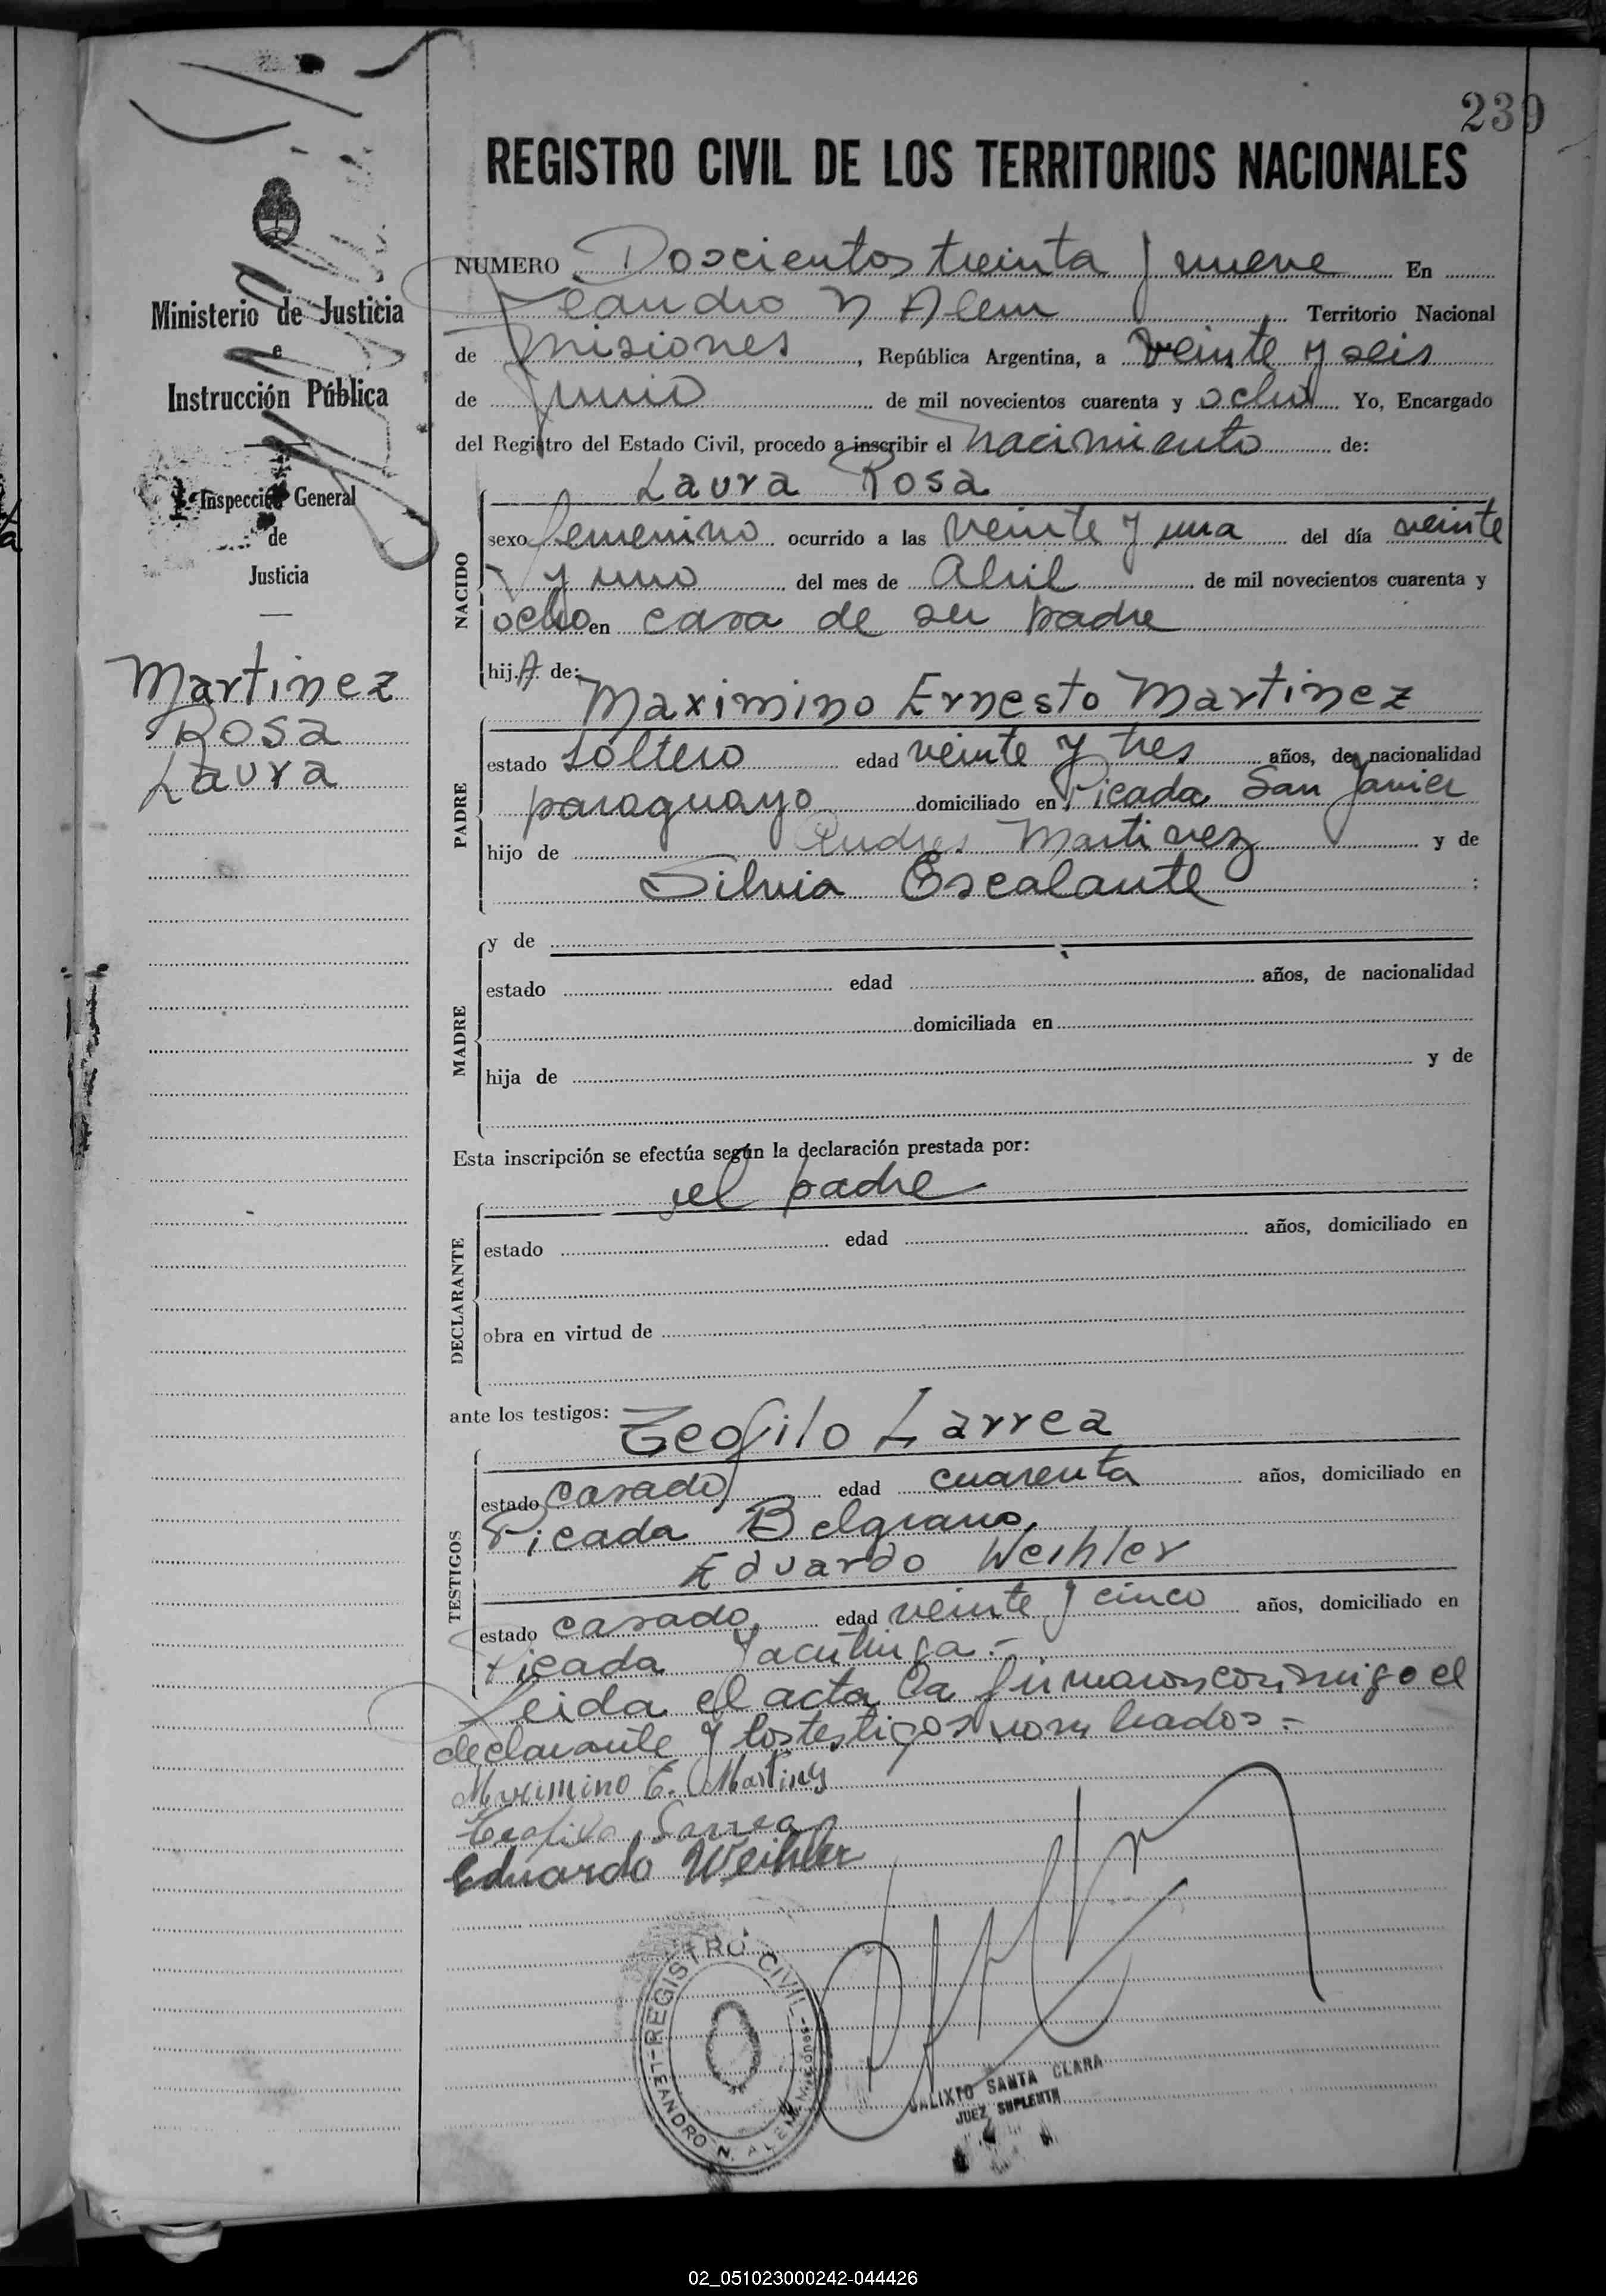 239
REGISTRO CIVIL DE LOS TERRITORIOS NACIONALES
Ministerio de Justicia
e
Instrucción Pública
Inspección General
de
Justicia
Martinez
Rosa
Laura
NUMERO Doscientos treinta y nueve En
Leandro N Alem Territorio Nacional
de Misiones, República Argentina, a veinte y seis
de Junio de mil novecientos cuarenta y ocho Yo, Encargado
del Registro del Estado Civil, procedo a inscribir el nacimiento de:
Laura Rosa
NACIDO
sexo femenino ocurrido a las veinte y una del día veinte
y uno del mes de Abril de mil novecientos cuarenta y
ocho en casa de su padre
hijA de:
Maximino Ernesto Martinez
PADRE
estado soltero edad veinte y tres años, de nacionalidad
paraguayo domiciliado en Picada San Javier
hijo de Andres Martinez y de
Silvia Escalante ;
MADRE
y de
estado edad años, de nacionalidad
domiciliada en
hija de y de
Esta inscripción se efectúa según la declaración prestada por:
el padre
DECLARANTE
estado edad años, domiciliado en
obra en virtud de
ante los testigos: Teofilo Larrea
TESTIGOS
estado casado edad cuarenta años, domiciliado en
Picada Belgrano
Eduardo Weihler
estado casado edad veinte y cinco años, domiciliado en
Picada Yacutinga.-
Leida el acta la firmaron conmigo el
declarante y los testigos nombrados.-
Maximino E. Martinez
Teofilo Larrea
Eduardo Weihler
REGISTRO CIVIL - LEANDRO N. ALEM - Misiones
CALIXTO SANTA CLARA
JUEZ SUPLENTE
02_051023000242-044426